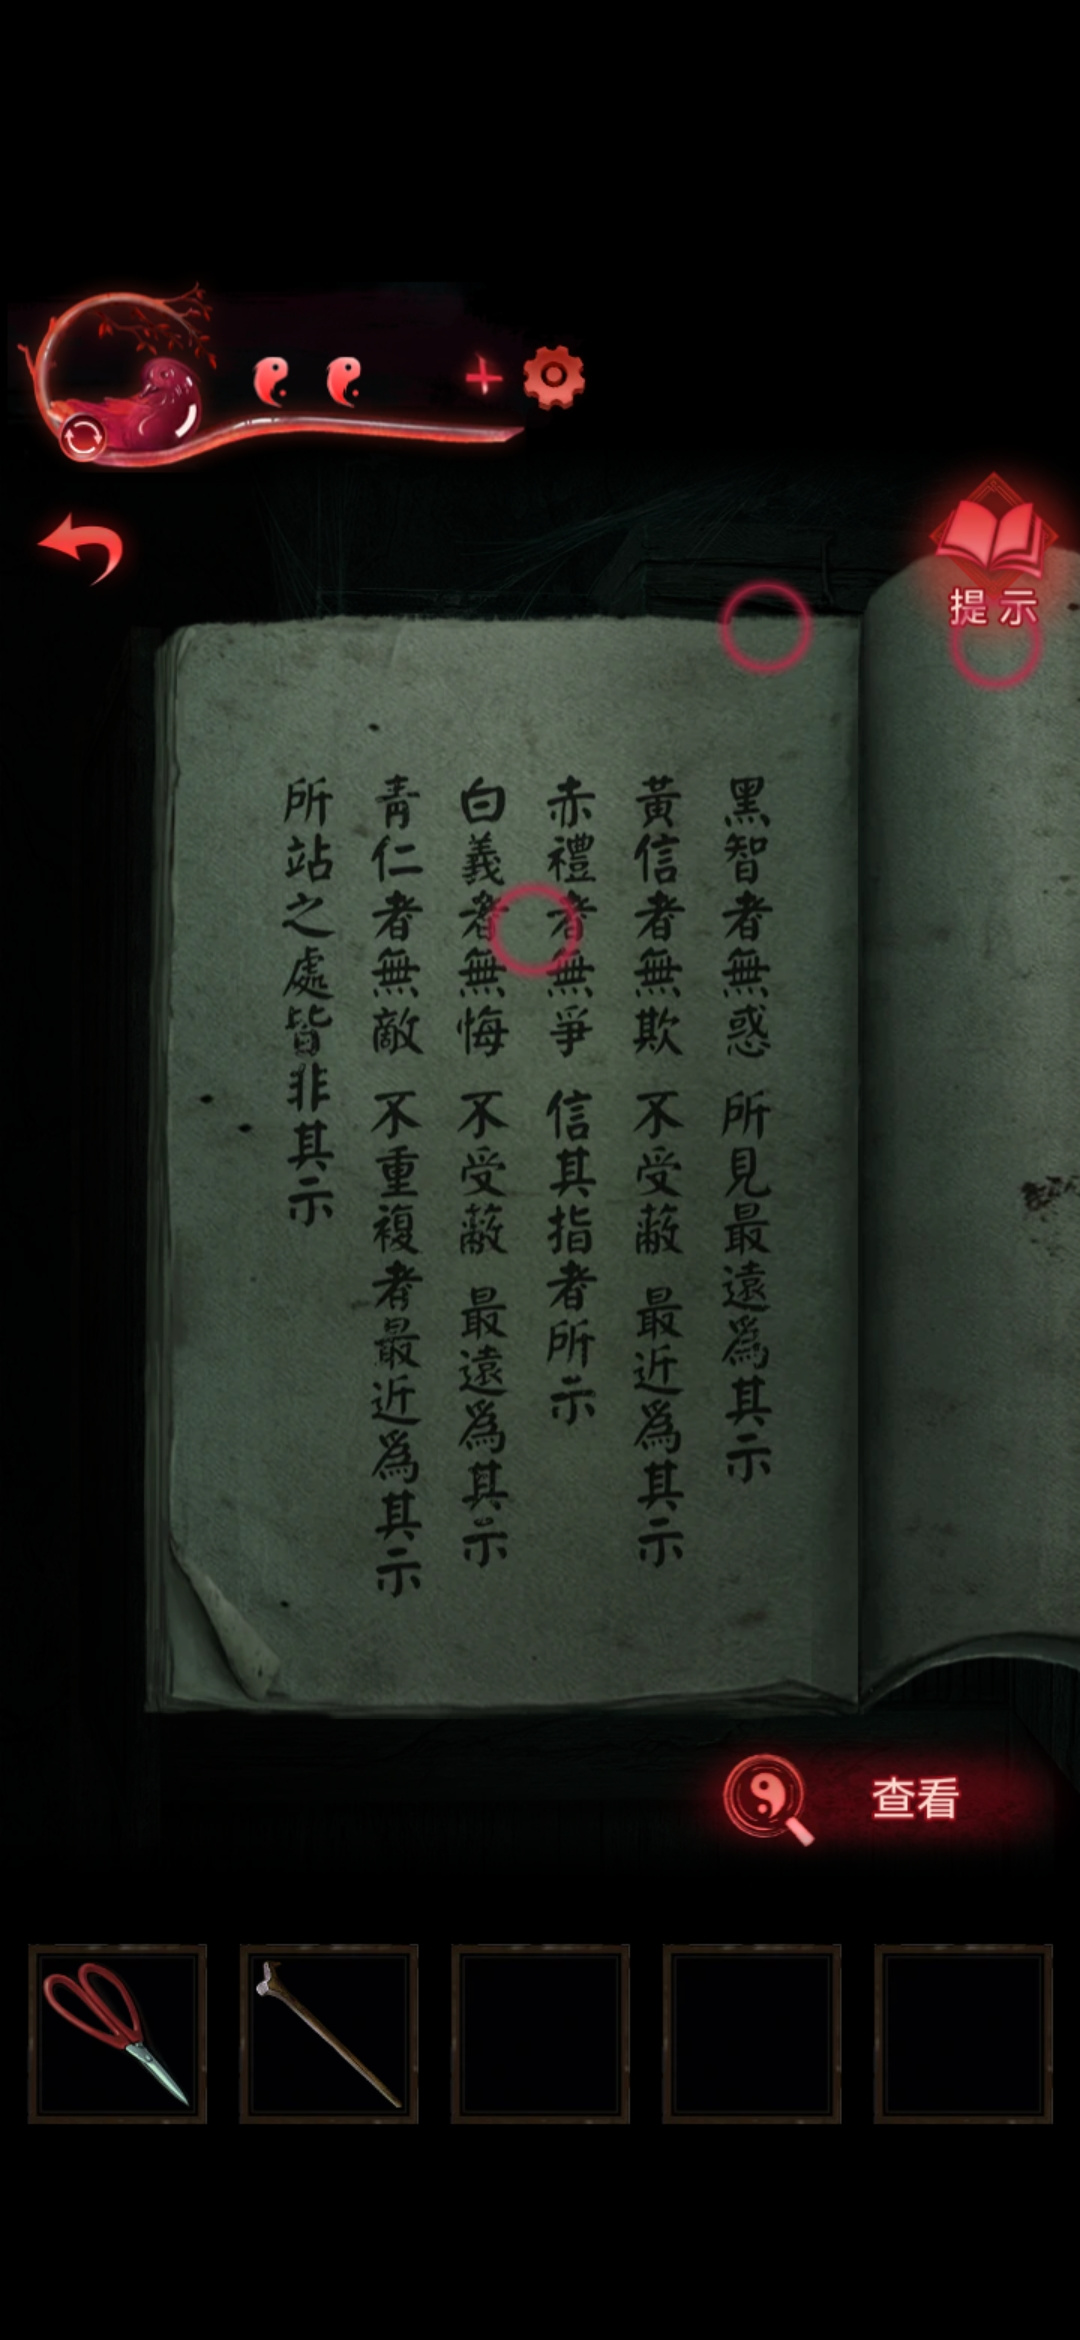 提示
黑智者無惑 所見最遠爲其示
黃信者無欺 不受蔽 最近爲其示
赤禮者無爭 信其指者所示
白義者無悔 不受蔽 最遠爲其示
青仁者無敵 不重複者最近爲其示
所站之處皆非其示
查看